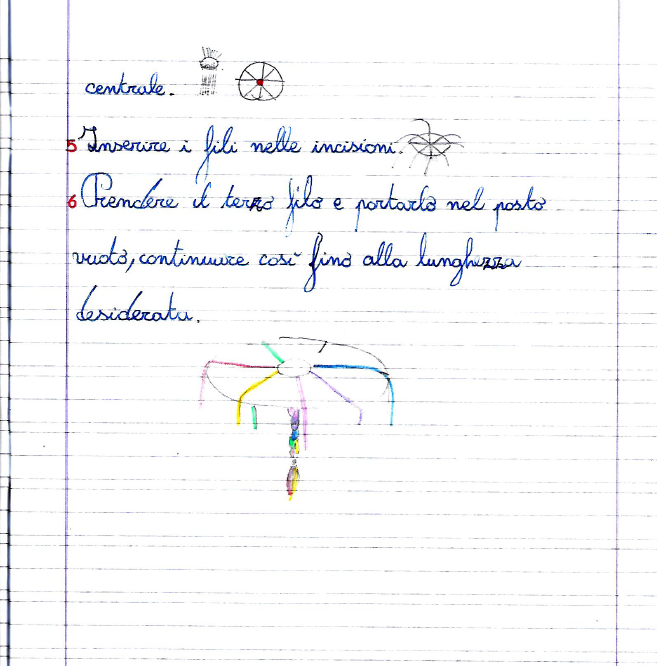 centrale.
5 Inserire i fili nelle incisioni.
6 Prendere il terzo filo e portarlo nel posto
vuoto, continuare così fino alla lunghezza
desiderata.